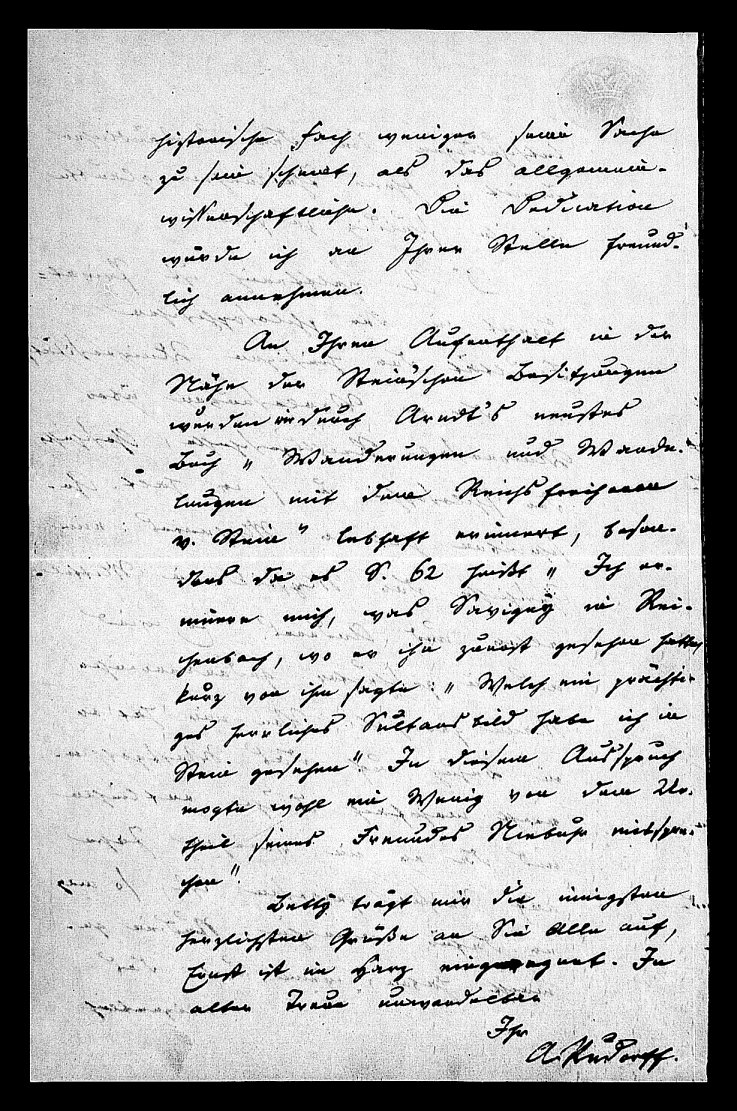 historische Fach weniger seine Sache
zu sein scheint, als das allgemein-
wissenschaftliche. Die Dedication
würde ich an Ihrer Stelle freund-
lich annehmen.
An Ihren Aufenthalt in der
Nähe der Stein'schen Besitzungen
wurden wir durch Arndt's neustes
Buch „ Wanderungen und Wande-
lungen mit dem Reichsfreiherrn
v. Stein" lebhaft erinnert, beson-
ders da es S. 62 heißt „ Ich er-
innere mich, was Savigny in Rei-
chenbach, wo er ihn zuerst gesehen hatte,
kurz von ihm sagte: „ Welch ein prächti-
ges herrliches Sultansbild habe ich in
Stein gesehen" In diesem Ausspruch
mogte wohl ein Wenig von dem Ur-
theil seines Freundes Niebuhr mitspre-
chen".
Betty trägt mir die innigsten
herzlichsten Grüße an Sie Alle auf,
Ernst ist im Harz eingeregnet. In
alter Treue unwandelbar
Ihr
A. Rudorff.